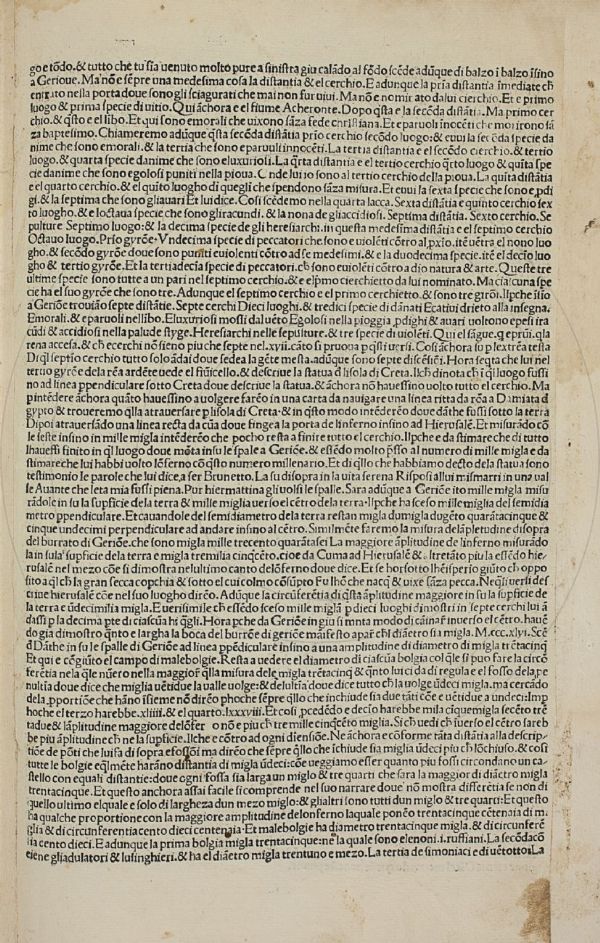 go e tōdo. & tutto che tu sia uenuto molto pure a sinistra giu calādo al fōdo scēde adūque di balzo ī balzo īsino
a Gerioue. Ma nō e sēpre una medesima cosa la distantia & el cerchio. E adunque la pria distantia īmediate ch̄
entrato nella porta doue sono gli sciagurati che mai non fur uiui. Ma nō e nomīato da lui cierchio. Et e primo
luogo & prima specie di uitio. Qui āchora e el fiume Acheronte. Dopo q̄sta e la secōda distātia. Ma primo cer
chio. & q̄sto e el lībo. Et qui sono emorali che uixono sāza fede christiana. Et e paruoli inocēti che morirono sā
za baptesimo. Chiameremo adūque q̄sta secōda distātia prīo cerchio secōdo luogo: & euui la secōda specie da
nime che sono emorali. & la tertia che sono e paruuli innocēti. La tertia distantia e el secōdo cierchio. & tertio
luogo. & quarta specie danime che sono e luxuriosi. La q̄rta distātia e el tertio cerchio q̄rto luogo & quīta spe
cie danime che sono egolosi puniti nella pioua. Onde lui io sono al tertio cerchio della pioua. La quīta distātia
e el quarto cerchio. & el quīto luogho di quegli che spendono sāza misura. Et euui la sexta specie che sono e, pdi
gi. & la septima che sono gliauari Et lui dice. Cosi scēdemo nella quarta lacca. Sexta distātia e quinto cerchio sex
to luogho. & e loctaua specie che sono gliracundi. & la nona de gliaccidiosi. Septima distātia. Sexto cerchio. Se
pulture Septimo luogo: & la decima specie de gli heresiarchi. in questa medesima distātia e el septimo cerchio
Octauo luogo. Prīo gyrōe. Vndecima specie di peccatori che sono e uiolēti cōtro al pxīo. itē uētra el nono luo
gho. & secōdo gyrōe doue sono puniti e uiolenti cōtro ad se medesimi. & e la duodecima specie. itē el decīo luo
gho & tertio gyrōe. Et la tertiadecīa specie di peccatori. ch̄ sono e uiolēti cōtro a dio natura & arte. Queste tre
ultime specie sono tutte a un pari nel septimo cerchio. & e elpmo cierchietto da lui nominato. Ma ciascuna spe
cie ha el suo gyrōe che sono tre. Adunque el septimo cerchio e el primo cerchietto. & sono tre girōi. Ilpche īsio
a Geriōe trouiāo septe distātie. Septe cerchi Dieci luoghi. & tredici specie di dānati E catiui drieto alla insegna.
Emorali. & e paruoli nellibo. E luxuriosi mossi dal uēto Egolosi nella pioggia, pdighi & auari uoltono epesi Ira
cūdi & accidiosi nella palude styge. Heresiarchi nelle sepulture. & tre specie di uiolēti. Qui el sāgue. q̄ e pruī. q̄ la
rena accesa. & ch̄ e cerchi nō sieno piu che septe nel .xvii. cāto si pruoua p q̄sti uersi. Cosi āchora su p lextrēa testa
Di q̄l septīo cerchio tutto solo ādai doue sedea la gēte mesta. adūque sono septe discēsiēi. Hora seqta che lui nel
tertio gyrōe dela rēa ardēte uede el fiūicello. & descriue la statua d̄ lisola di Creta. Ilch̄ dinota ch̄ ī q̄l luogo fussi
no ad linea ppendiculare sotto Creta doue descriue la statua. & āchora nō hauessino uolto tutto el cerchio. Ma
p intēdere āchora quāto hauessino a uolgere farēo in una carta da nauigare una linea ritta da rēa a Damiata d̄
gypto & troueremo q̄lla atrauersare p lisola di Creta. & in q̄sto modo intēderēo doue dāthe fussi sotto la terra
Dipoi atrauersādo una linea recta da cua doue finge a la porta de linferno insino ad Hierusalē. Et misurādo cō
le seste insino in mille migla intēderēo che pocho resta a finire tutto el cerchio. Ilpche e da stimare che di tutto
lhauessi finito in q̄l luogo doue mōta insu le spalle a Geriōe. & estēdo molto p̄sso al numero di mille migla e da
stimare che lui habbi uolto lōferno cō q̄sto numero millenario. Et di q̄llo che habbiamo decto de la statua sono
testimonio le parole che lui dice, a ser Brunetto. La su disopra in la uita serena Risposi allui mi smarri in una val
le Auante che leta mia fussi piena. Pur hiermattina gli uolsi le spalle. Sara adūque a Geriōe ito mille migla misu
rādole in su la supficie de la terra & mille migla uerso el cētro de la terra. Ilpche ha sceso mille migla del semidia
metro ppendiculare. Et cauandole del semidiametro de la terra restan migla dumila dugēto quarātacinque &
cinque undecimi perpendiculare ad andare insino al cētro. Similmēte faremo la misura de la p̄litudine disopra
del burrato di Geriōe. che sono migla mille trecento quarātasei La maggiore āplitudine de linferno misurado
la in sula supficie de la terra e migla tremilia cinq̄cēto. cioe da Cuma ad Hierusalē & altretāto piu la essēdo hie
rusalē nel mezo cōe si dimostra ne lultimo canto de lōferno doue dice. Et se hor sotto lhēisperio giūto ch̄ oppo
sito a q̄l ch̄ la gran secca copchia & sotto el cui colmo cōsūpto Fu lhō che nacq̄ & uixe sāza pecca. Neq̄li uersi des
criue hierusalē cōe nel suo luogho dirēo. Adūque la circūferētia di q̄sta āplitudine maggiore in su la supficie de
la terra e ūdecimilia migla. E uerisimile ch̄ essēdo sceso mille migla p dieci luoghi dimostri in septe cerchi lui ā
dassi p la decima pte di ciascūa hi q̄gli. Hora pche da Geriōe giu si mōta modo di cāinar p̄ inuerso el cētro. hauē
do gia dimostro q̄nto e largha la boca del burrōe di geriōe māifesto appar ch̄l diāetro sia migla. M.ccc.xlvi. Scē
d̄ Dāthe in su le spalle di Geriōe ad linea ppēdiculare insino a una amplitudine di diametro di migla trētacinq̄
Et qui e cōgiūto el campo di malebolgie. Resta a uedere el diametro di ciascūa bolgia col q̄le si puo fare la circō
ferētia nela q̄le nūero nella maggior q̄lla misura dele migla trētacinq̄ & q̄nto luici da di regula e el fosso dela, pe
nultīa doue dice che miglia uētidue la ualle uolge: & de lultīa doue dice tutto ch̄ la uolge ūdeci migla. ma cercādo
dela, pportiōe che hāno īsieme nō dirēo phoche sēpre q̄llo che inchiude sia due tāti cōe e uētidue a undeci: Imp
hoche el terzo harebbe. xliiii. & el quarto. lxxxviii. Et cosi, pcedēdo e decīo harebbe mīla cīquemigla secēto trē
tadue & lāplitudine maggiore del lōfer o nō e piu ch̄ tremille cinq̄cēto miglia. Si ch̄ uedi ch̄ iuerso el cētro sareb
be piu āplitudine ch̄ ne la supficie. Ilche e cōtro ad ogni diensiōe. Ne āchora ecōforme tāta distātia alla descrip
tiōe de pōti che lui fa di sopra efossi ma dirēo che sēpre q̄llo che īchiude sia migla ūdeci piu ch̄ lōchiuso. & cosi
tutte le bolgie eq̄lmēte harāno distātia di migla ūdeci: cōe ueggiamo esser quanto piu fossi circondano un ca
stello con equali distantie: doue ogni fossa sia larga un miglo & tre quarti che sara la maggior di diāetro migla
trentacinque. Et questo anchora assai facile si comprende nel suo narrare doue nō mostra differētia se non di
quello ultimo el quale e solo di largheza dun mezo miglo: & gli altri sono tutti dun miglo & tre quarti: Et questo
ha qualche proportione con la maggiore amplitudine de lonferno la quale ponēo trentacinque cētenaia di mi
glia & di circunferentia cento dieci centenaia. Et malebolgie ha diametro trentacinque migla. & di circunferē
tia cento dieci. E adunque la prima bolgia migla trentacinque: ne la quale sono elenoni .i. ruffiani. La secōda cō
tiene gliadulatori & lusinghieri. & ha el diāetro migla trentuno e mezo. La tertia de simoniaci e di uētotto: La